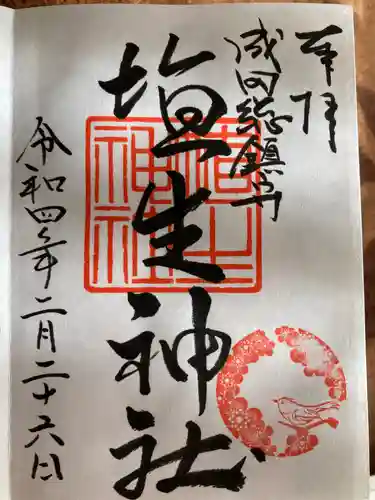 奉拝
成田総鎮守
埴生神社
令和四年二月二十六日